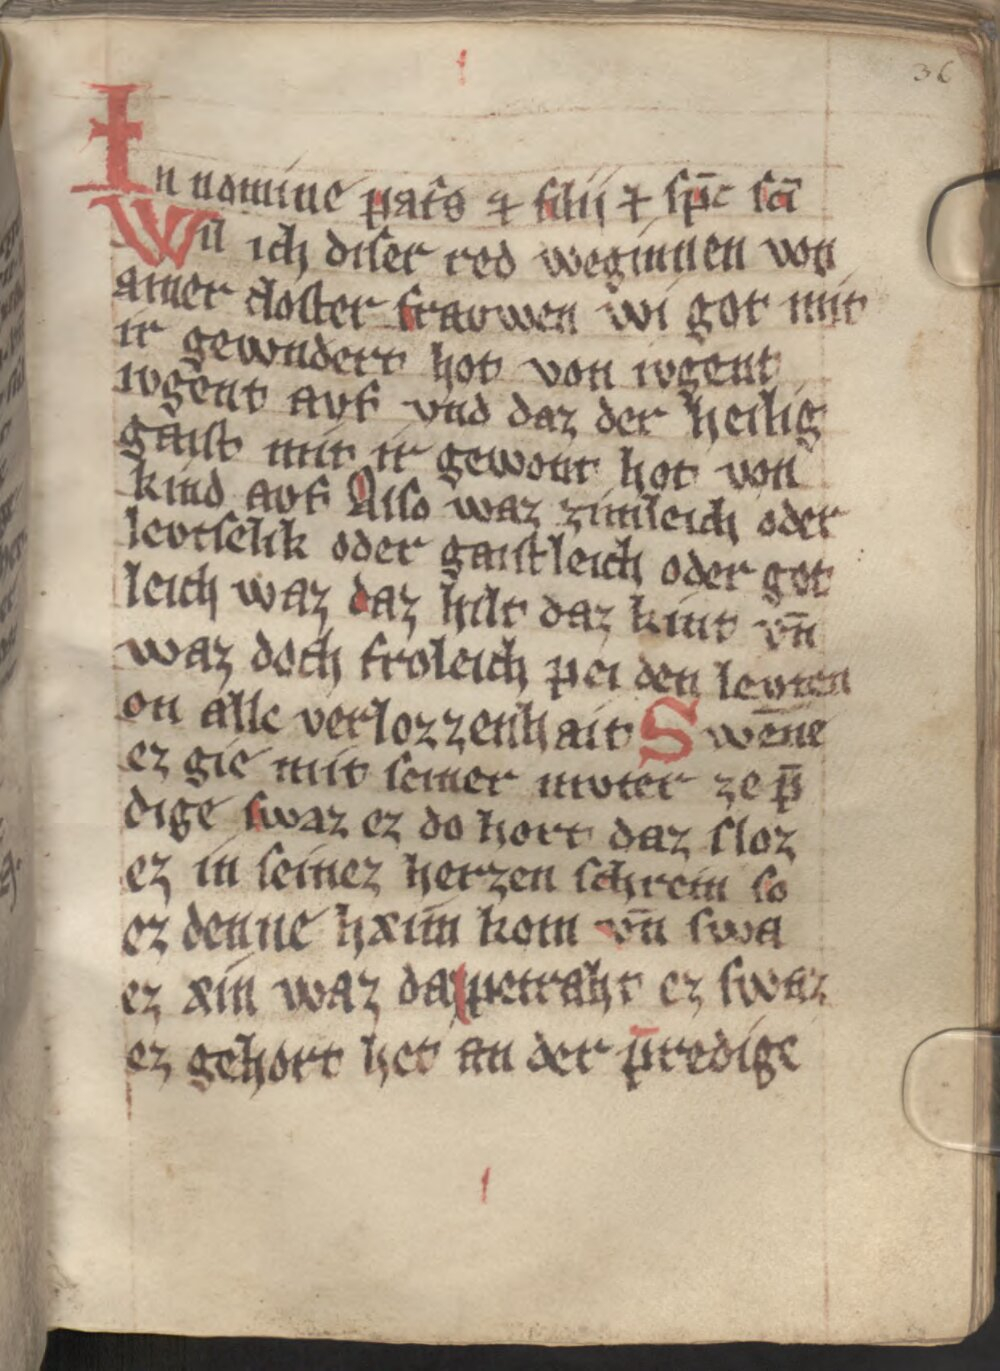 36
In nomine pat̄s ⁊ filii ⁊ sp̄c sc̄i
Wil ich diser red weginnen von
ainer closter frauwen wi got mit
ir gewndert hot von ivgent
ivgent avf vnd daz der heilig
gaist mit ir gewont hot von
kind avf Also waz zimleich oder
levtselik oder gaistleich oder got
leich waz daz hilt daz kint vn̄
waz doch froleich pei den levten
on alle verlozzenhait Swen̄e
ez gie mit seiner mvter ze p̄
dige swaz ez do hort daz sloz
ez in seinez herzen schrein so
ez denne hxim kom vn̄ swa
ez xin waz da petraht ez swaz
ez gehort het an der predige